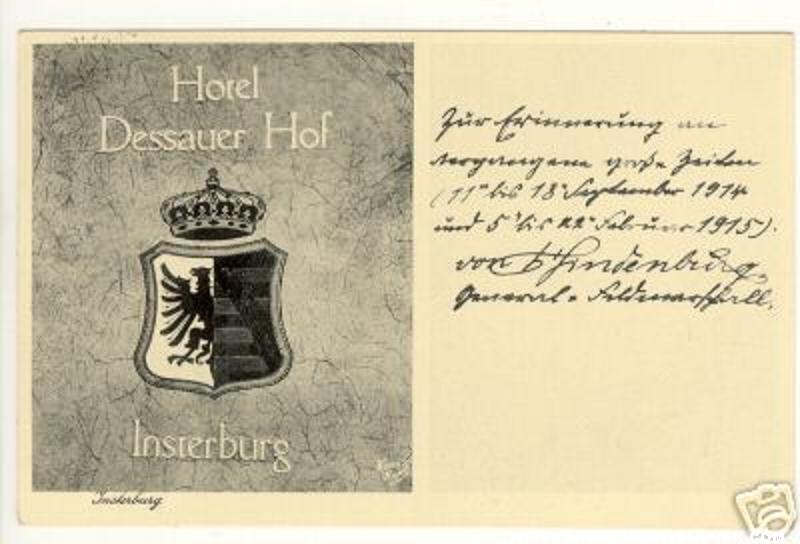 Hotel
Dessauer Hof
Insterburg
Insterburg
Zur Erinnerung an
vergangene große Zeiten
(11ten bis 18ten September 1914
und 5ten bis 22ten Februar 1915).
von Hindenburg,
General-Feldmarschall.